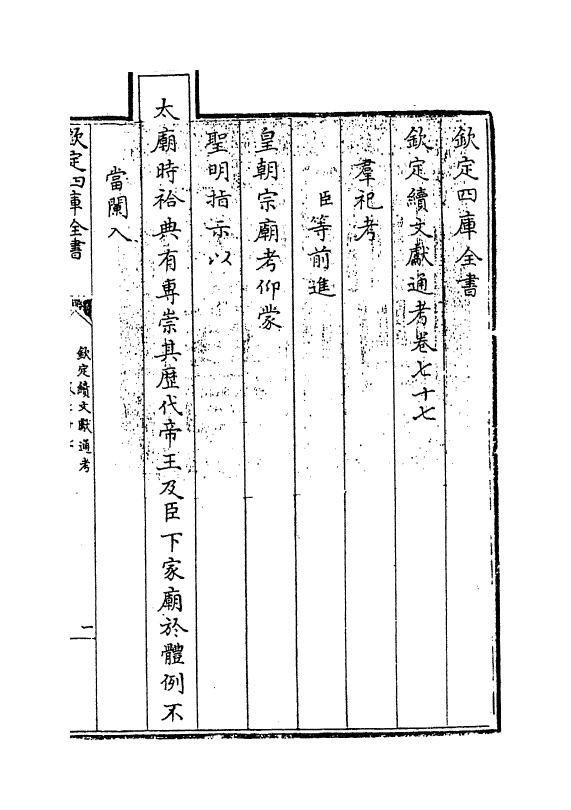 欽定四庫全書
欽定續文獻通考卷七十七
羣祀考
臣等前進
皇朝宗廟考仰蒙
聖明指示以
太廟時祫典有専崇其歴代帝王及臣下家廟於體例不
當闌入
欽定四庫全書
欽定續文獻通考
一